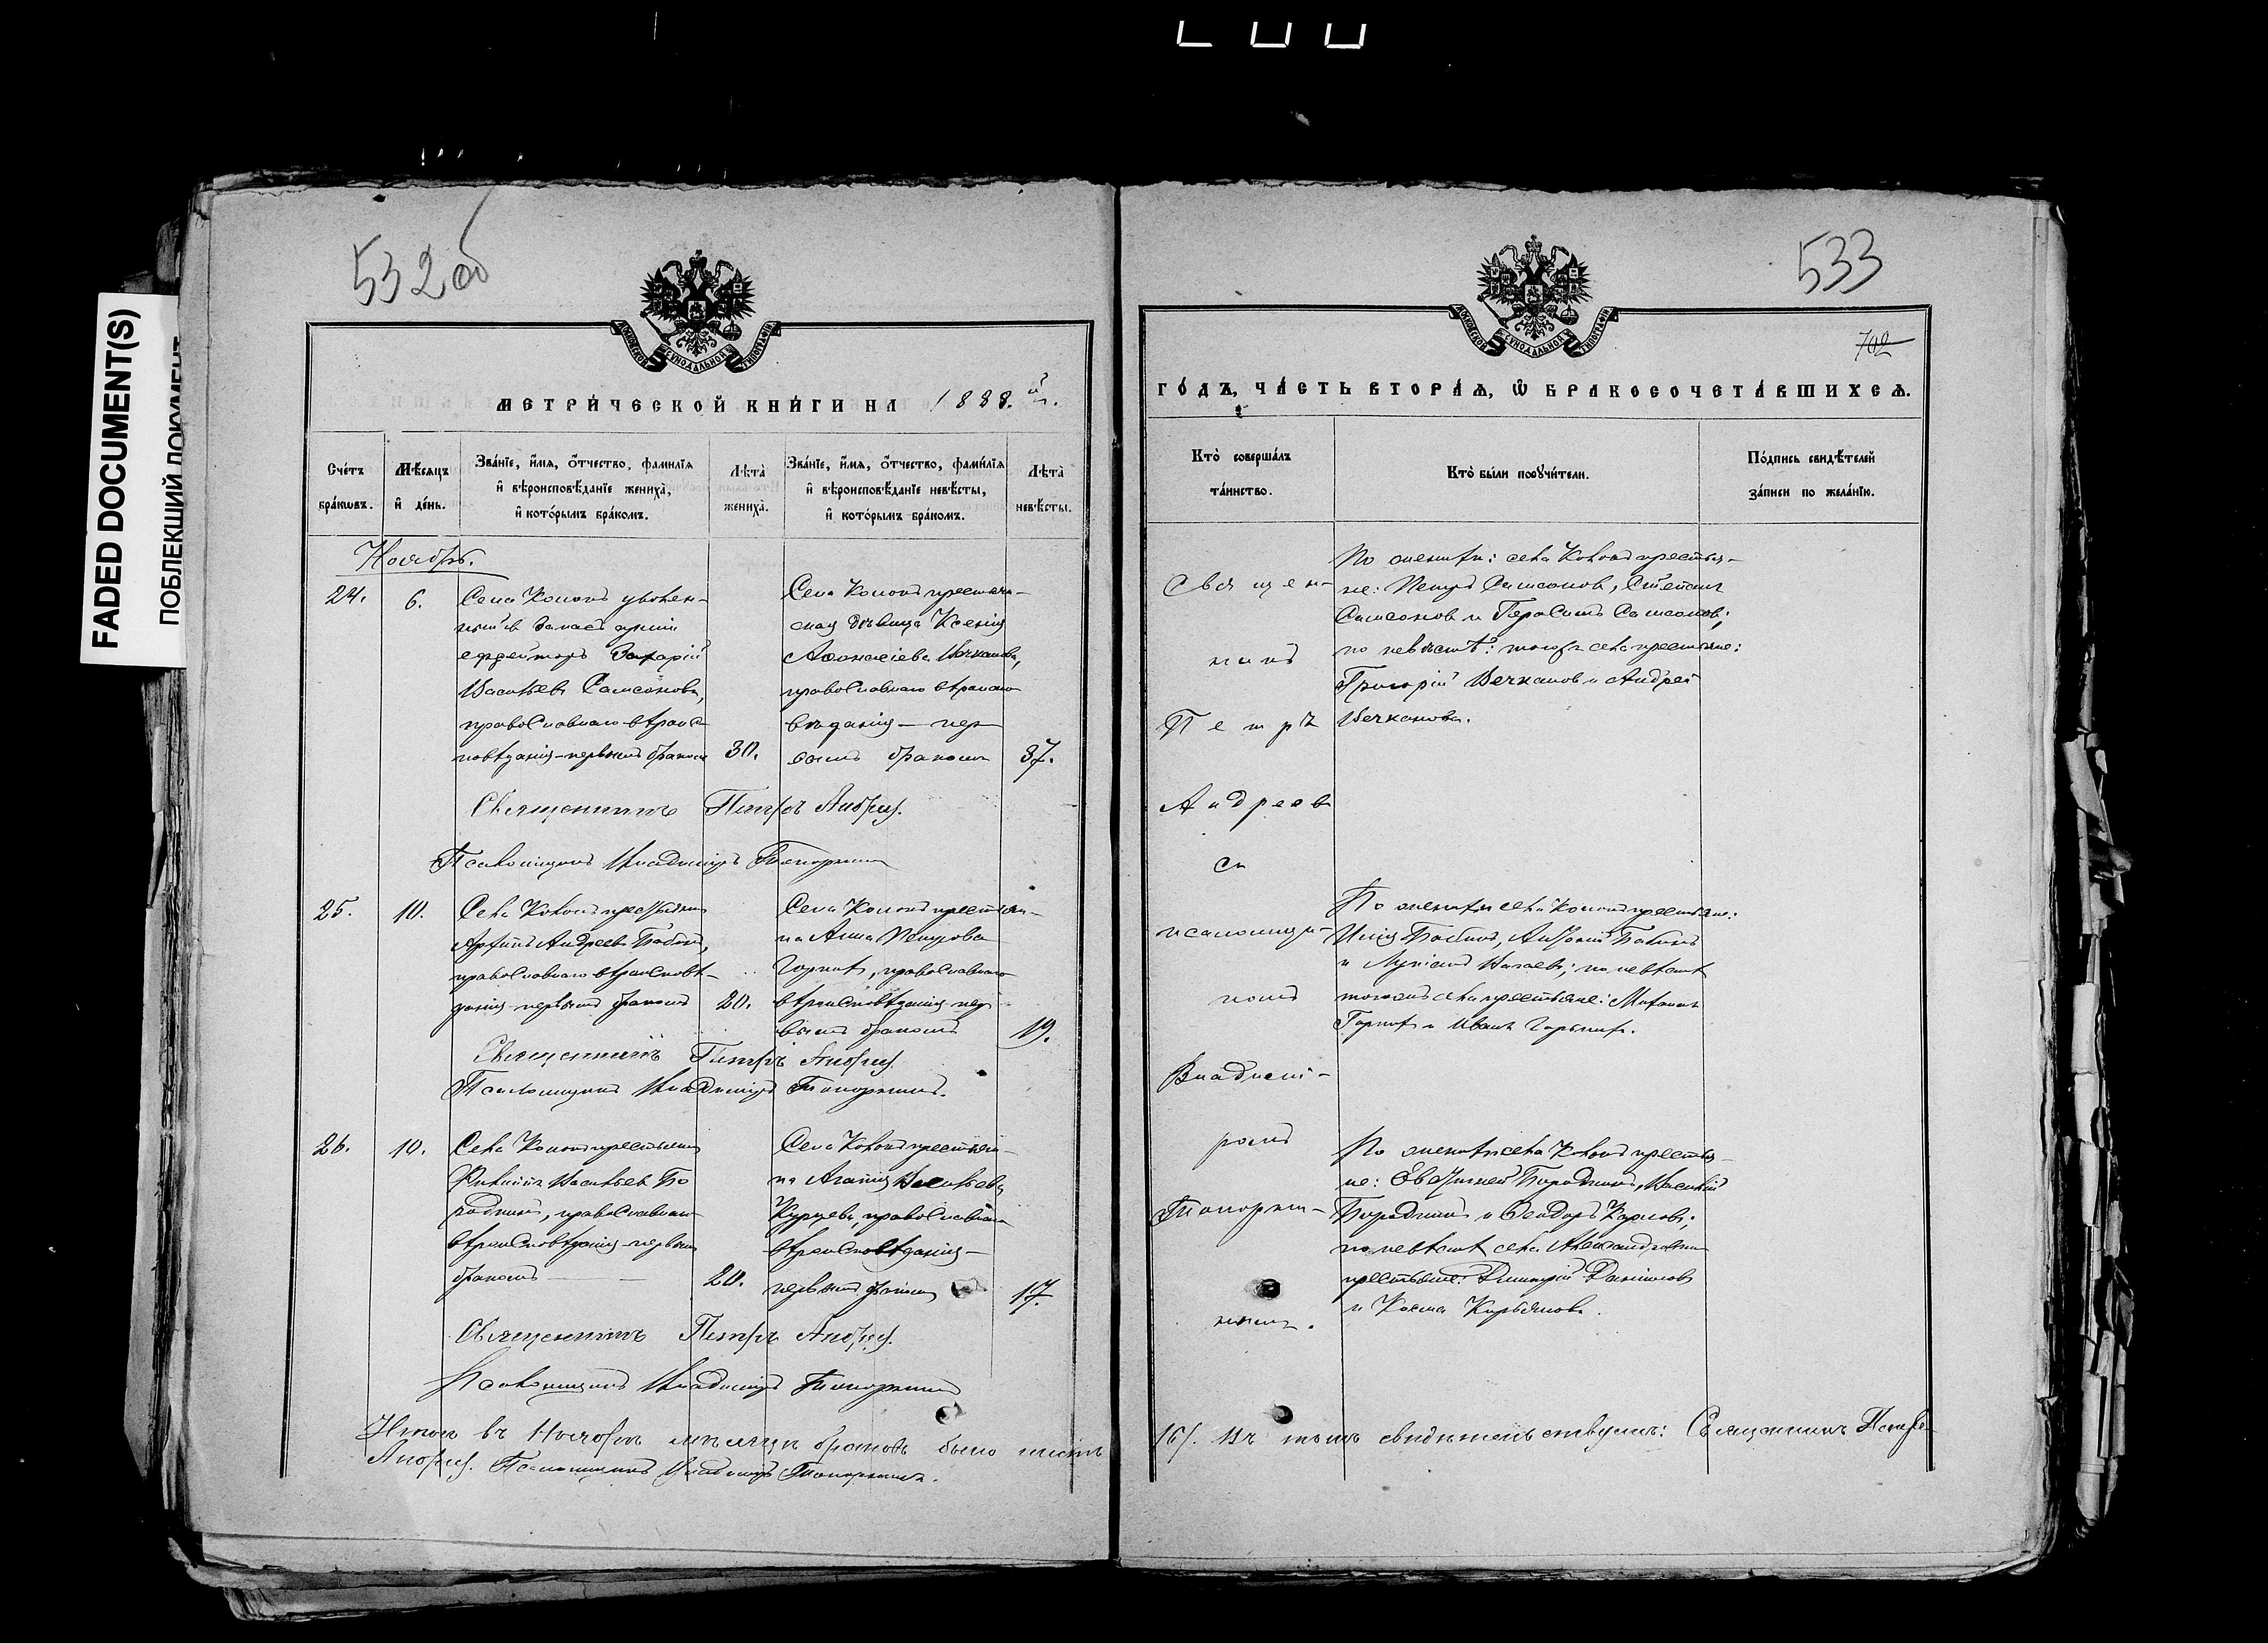 FADED DOCUMENT(S)
ПОБЛЕКЩИЙ ДОКУМЕНТ
532 об
МОСКОВСКОЙ СѴНОДАЛЬНОЙ ТИПОГРАФІИ
МЕТРИ́ЧЕСКОЙ КНИ́ГИ НА 1888.й г.
Сче́тъ бра́кѡвъ.
Мѣ́сяцъ и҆ де́нь.
Зва́нїе, и҆́мѧ, ѻ҆́тчество, фами́лїѧ и҆ вѣроисповѣ́данїе жениха̀, и҆ кото́рымъ бра́комъ.
Лѣта̀ жениха̀.
Зва́нїе, и҆́мѧ, ѻ҆́тчество, фами́лїѧ и҆ вѣроисповѣ́данїе невѣ́сты, и҆ кото́рымъ бра́комъ.
Лѣта̀ невѣ́сты.
Ноябрь.
24.
6.
Села Коковъ уволен-
ный въ запасъ арміи
ефрейторъ Захарій
Васильевъ Самсоновъ,
православнаго вѣроис-
повѣданія – первымъ бракомъ
30.
Села Коковъ крестьян-
ская дѣвица Ксенія
Аѳанасіева Вечканова,
православнаго вѣроиспо-
вѣданія – пер-
вымъ бракомъ
37.
Священникъ Петръ Андреев.
Псаломщикъ Владиміръ Топорнинъ
25.
10.
Села Коковъ крестьянинъ
Архипъ Андреевъ Бабинъ,
православнаго вѣроисповѣ-
данія первымъ бракомъ
20.
Села Коковъ крестьян-
ка Анна Петрова
православнаго
вѣроисповѣданія пер-
вымъ бракомъ
19.
Священникъ Петръ Андреев.
Псаломщикъ Владиміръ Топорнинъ.
26.
10.
Села Коковъ крестьянинъ
Филиппъ Васильевъ Бо-
родинъ, православнаго
вѣроисповѣданія первымъ
бракомъ
20.
Села Коковъ крестьян-
ка Агапія Васильева
православнаго
вѣроисповѣданія –
первымъ бракомъ
17.
Священникъ Петръ Андреев.
Псаломщикъ Владиміръ Топорнинъ
Итого въ Ноябрѣ мѣсяцѣ браковъ было шесть
Андреев. Псаломщикъ Владиміръ Топорнинъ.
533
702
МОСКОВСКОЙ СѴНОДАЛЬНОЙ ТИПОГРАФІИ
ГО́ДЪ, ЧА́СТЬ ВТОРА́Ѧ, Ѽ БРАКОСОЧЕТА́ВШИХСѦ.
Кто̀ соверша́лъ та́инство.
Кто̀ бы́ли порꙋчи́тели.
По́дпись свидѣ́телей за́писи по жела́нїю.
Священ-
никъ
Петръ
Андреевъ
съ
псаломщи-
комъ
Владимі-
ромъ
Топорни-
нымъ.
По женихѣ: села Коковъ крестья-
не: Петръ Самсоновъ, Степанъ
Самсоновъ и Герасимъ Самсоновъ;
по невѣстѣ: того же села крестьяне:
Григорій Вечкановъ и Андрей
Вечкановъ.
По женихѣ села Коковъ крестьяне:
Илія Бабинъ, Бабинъ
и по невѣстѣ
того же села крестьяне:
и Иванъ
По женихѣ села Коковъ крестья-
не: Евфимей Бородинъ, Василій
Бородинъ и Ѳеодоръ Карповъ;
по невѣстѣ села Александровки
крестьяне: Димитрій Даниловъ
и Косма Кирьяновъ.
/6/. Въ томъ свидѣтельствуемъ: Священникъ Петръ